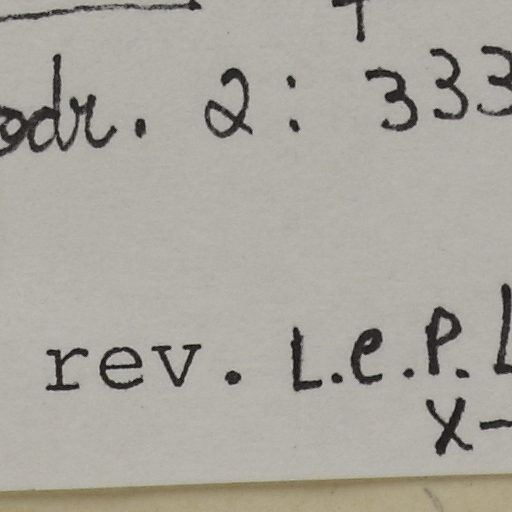 odr. 2: 333
rev. L.e.P. L
X-